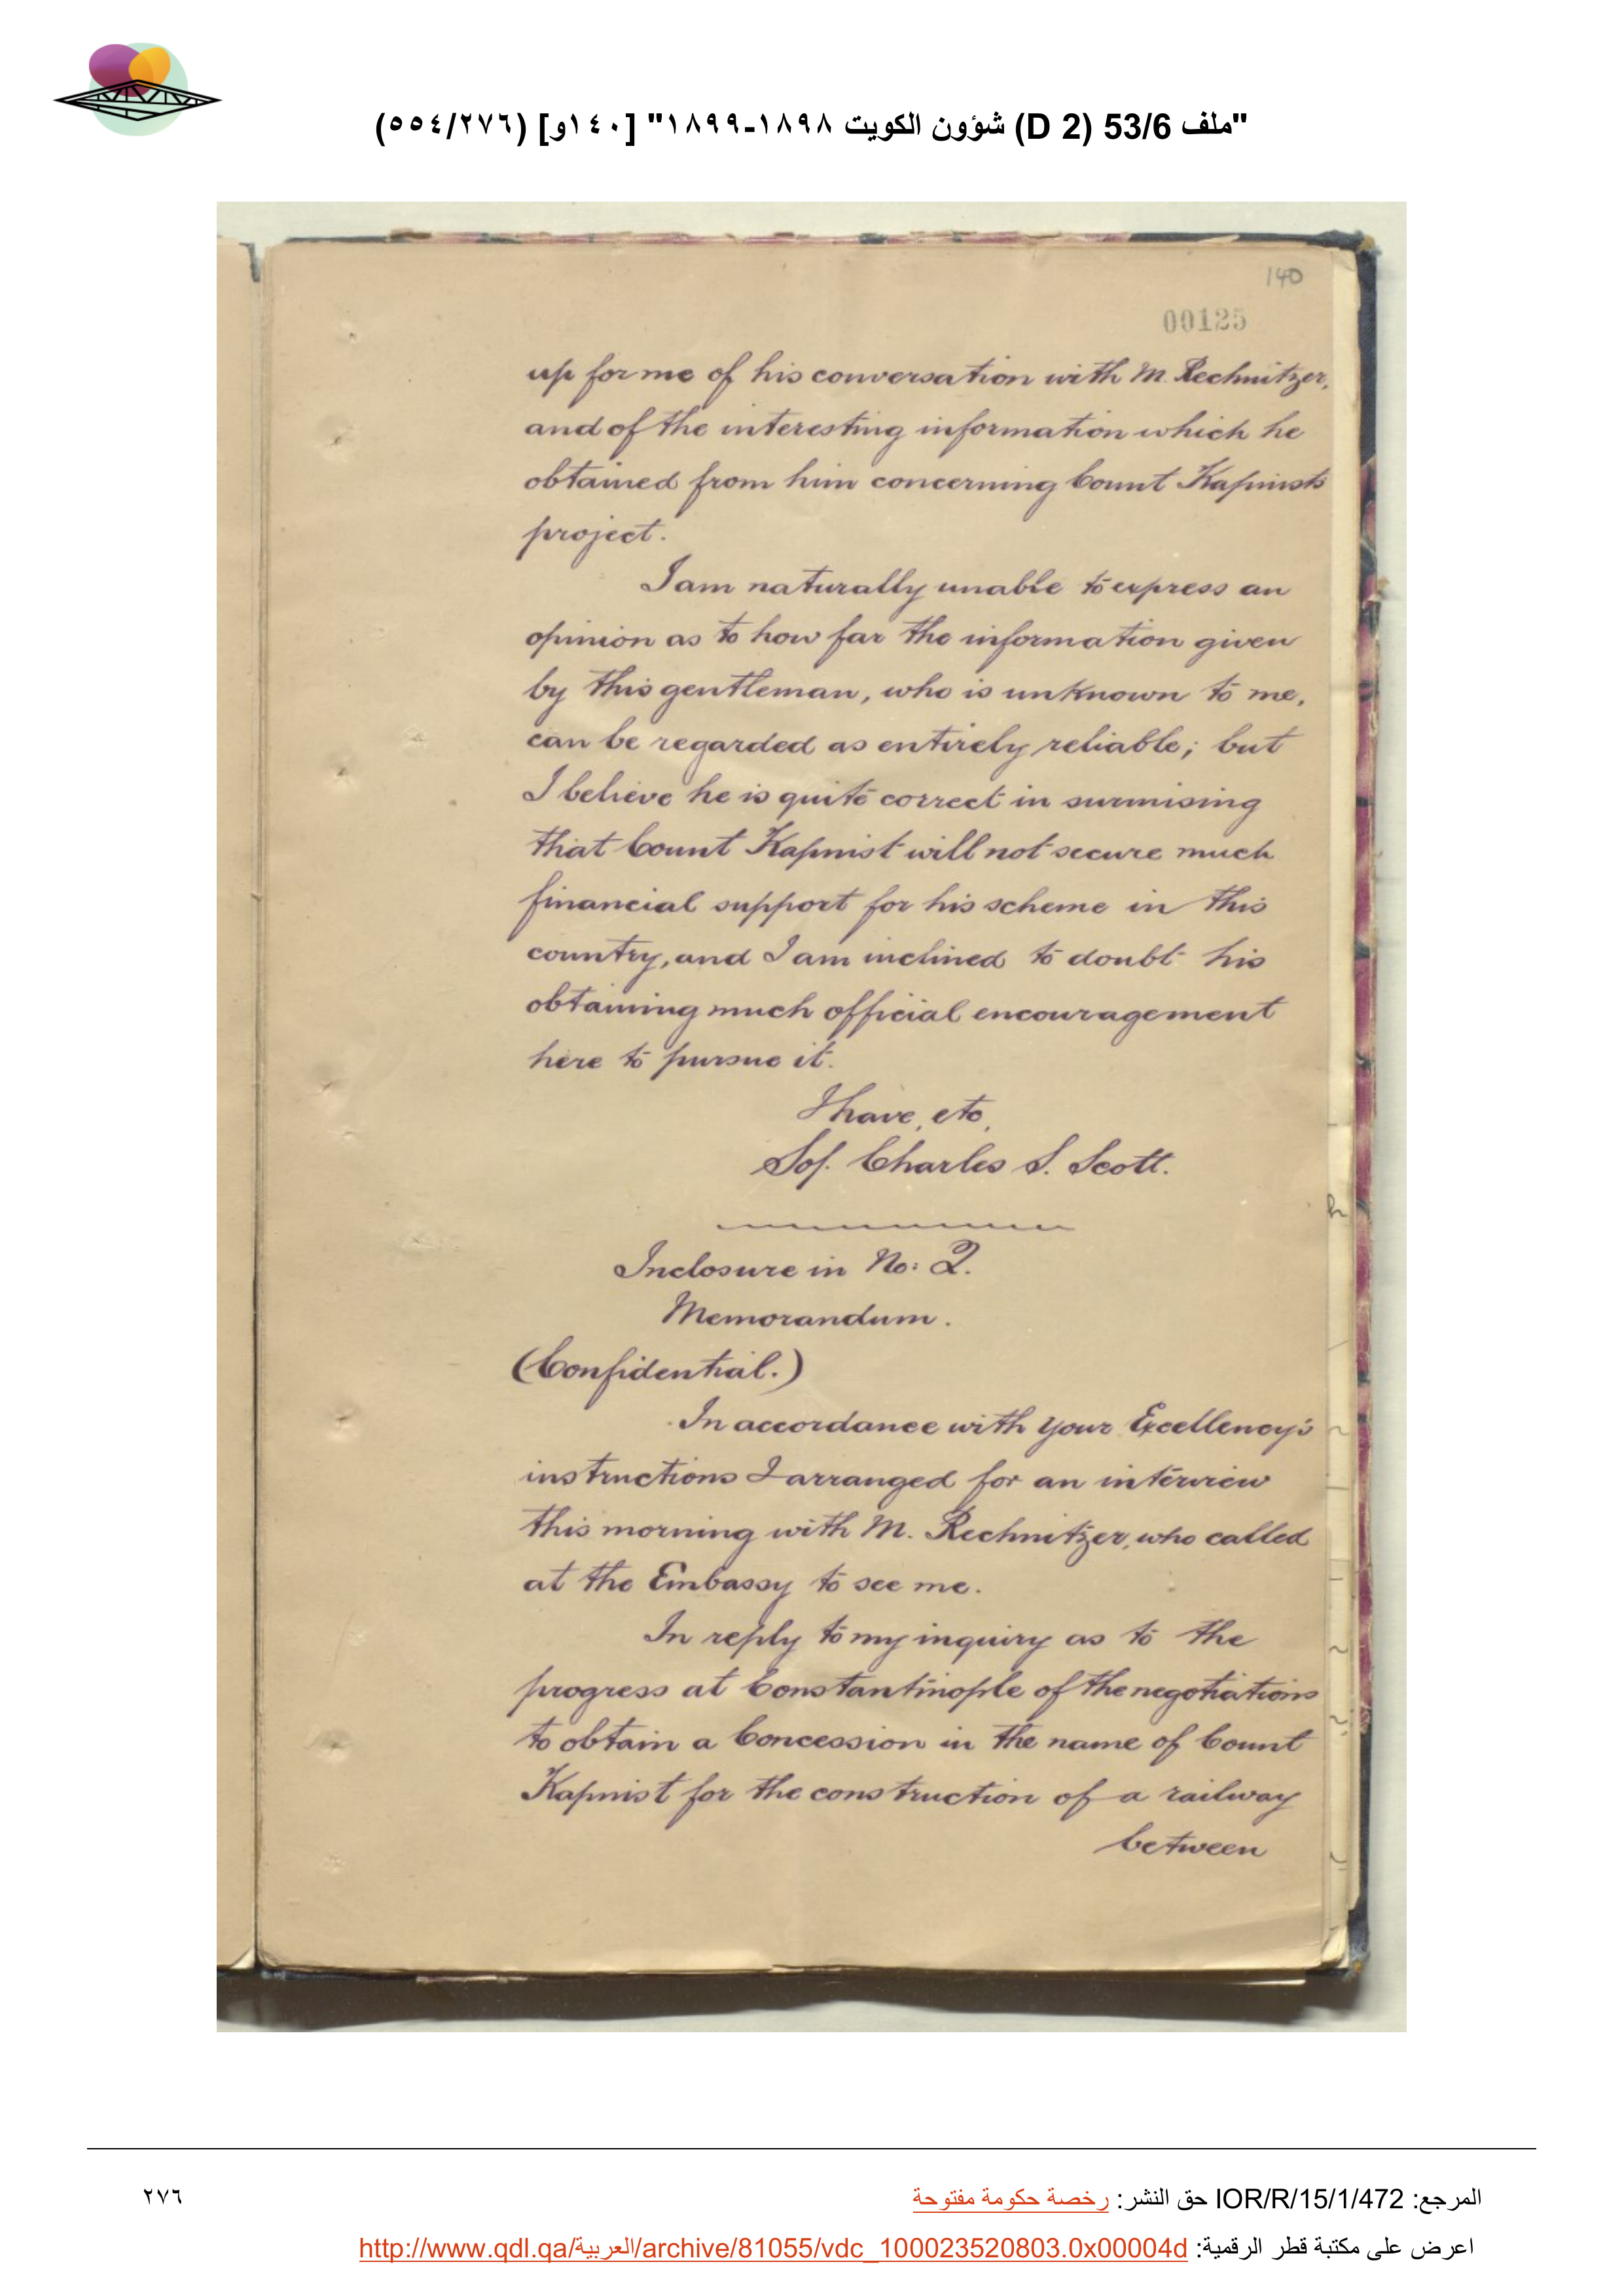 "ملف 53/6 (D 2) شؤون الكويت ١٨٩٨-١٨٩٩" [١٤٠و] (٢٧٦/٥٥٤)
140
00125
up for me of his conversation with M. Rechnitzer,
and of the interesting information which he
obtained from him concerning Count Kapnist's
project.
I am naturally unable to express an
opinion as to how far the information given
by this gentleman, who is unknown to me,
can be regarded as entirely reliable; but
I believe he is quite correct in surmising
that Count Kapnist will not secure much
financial support for his scheme in this
country, and I am inclined to doubt his
obtaining much official encouragement
here to pursue it.
I have, etc,
Sd/. Charles S. Scott.
Inclosure in No: 2.
Memorandum.
(Confidential.)
In accordance with your Excellency's
instructions I arranged for an interview
this morning with M. Rechnitzer, who called
at the Embassy to see me.
In reply to my inquiry as to the
progress at Constantinople of the negotiations
to obtain a Concession in the name of Count
Kapnist for the construction of a railway
between
المرجع: IOR/R/15/1/472 حق النشر: رخصة حكومة مفتوحة
٢٧٦
اعرض على مكتبة قطر الرقمية: http://www.qdl.qa/العربية/archive/81055/vdc_100023520803.0x00004d